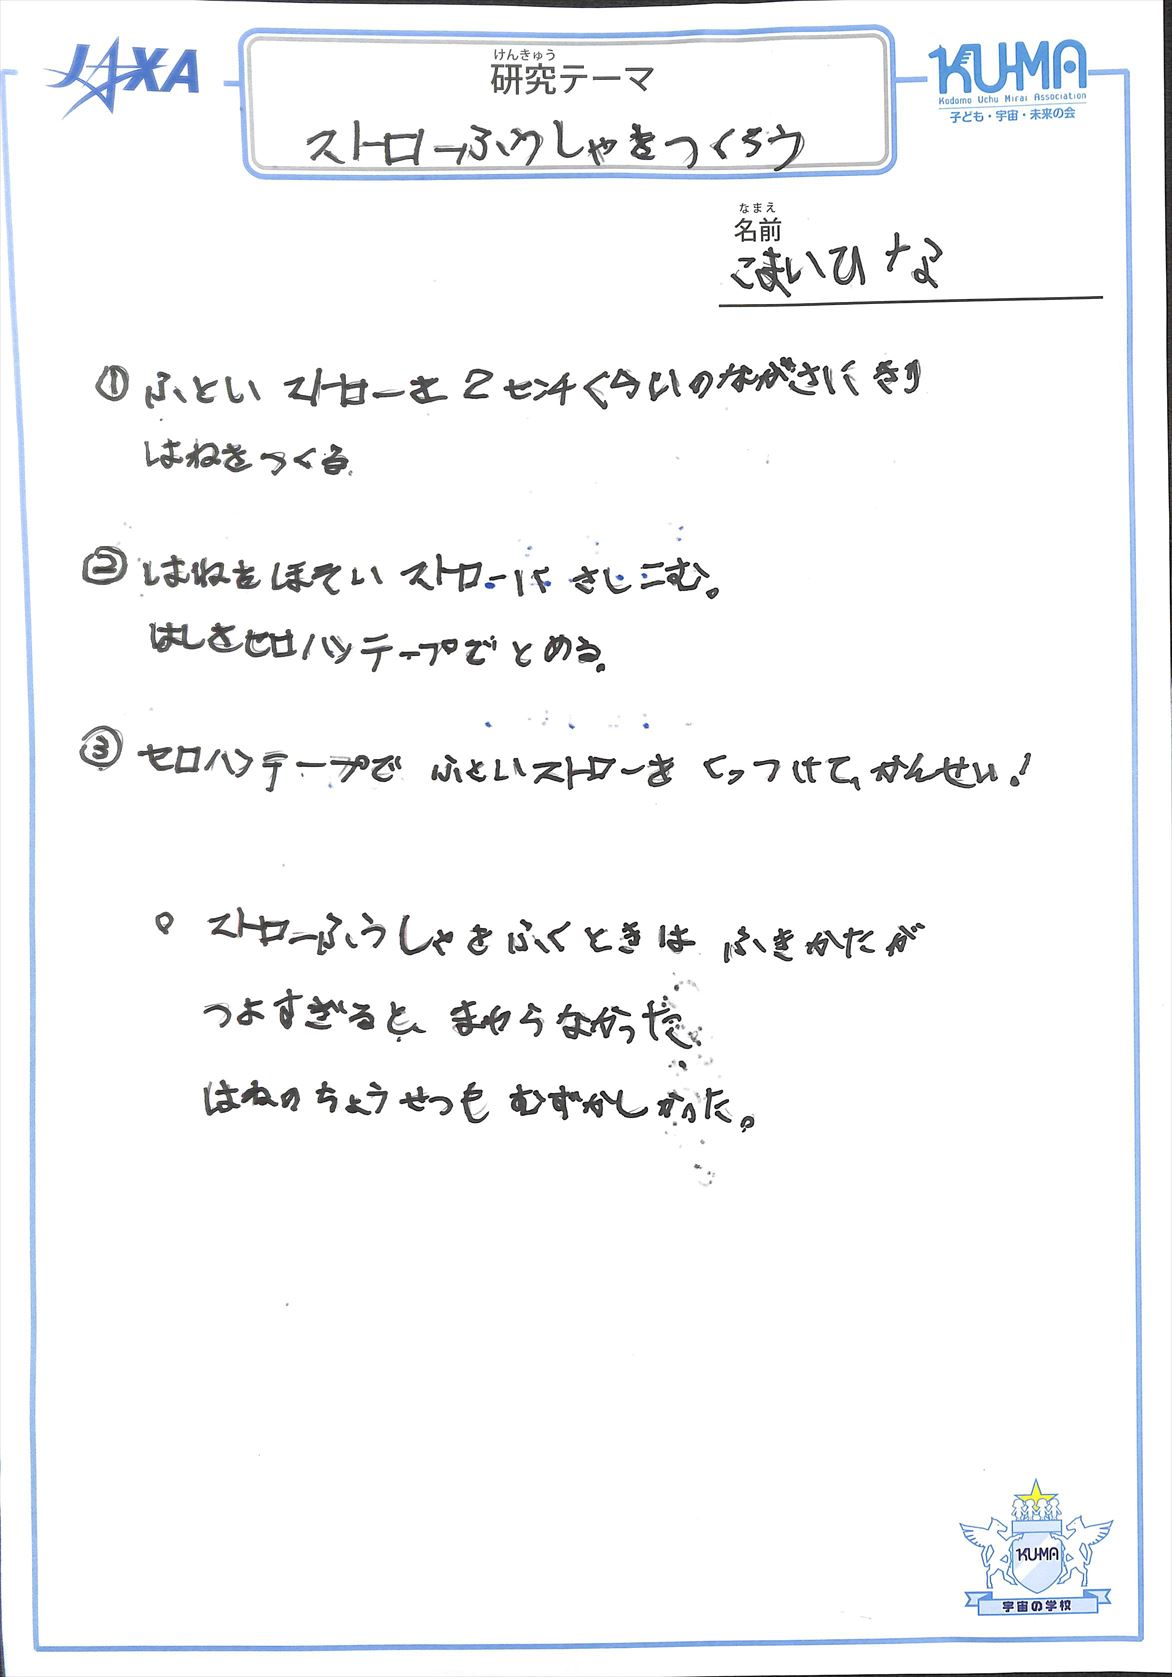 JAXA
けんきゅう
研究テーマ
ストローふうしゃをつくろう
KUMA
Kodomo Uchu Mirai Association
子ども・宇宙・未来の会
なまえ
名前
こまいひな
① ふとい ストローを 2センチぐらいのながさにきり
はねをつくる。
② はねをほそい ストローに さしこむ。
はしをセロハンテープでとめる。
③ セロハンテープで ふといストローを くっつけて、かんせい!
○ ストローふうしゃをふくときは ふきかたが
つよすぎると、まわらなかった。
はねのちょうせつも むずかしかった。
KU-MA
宇宙の学校